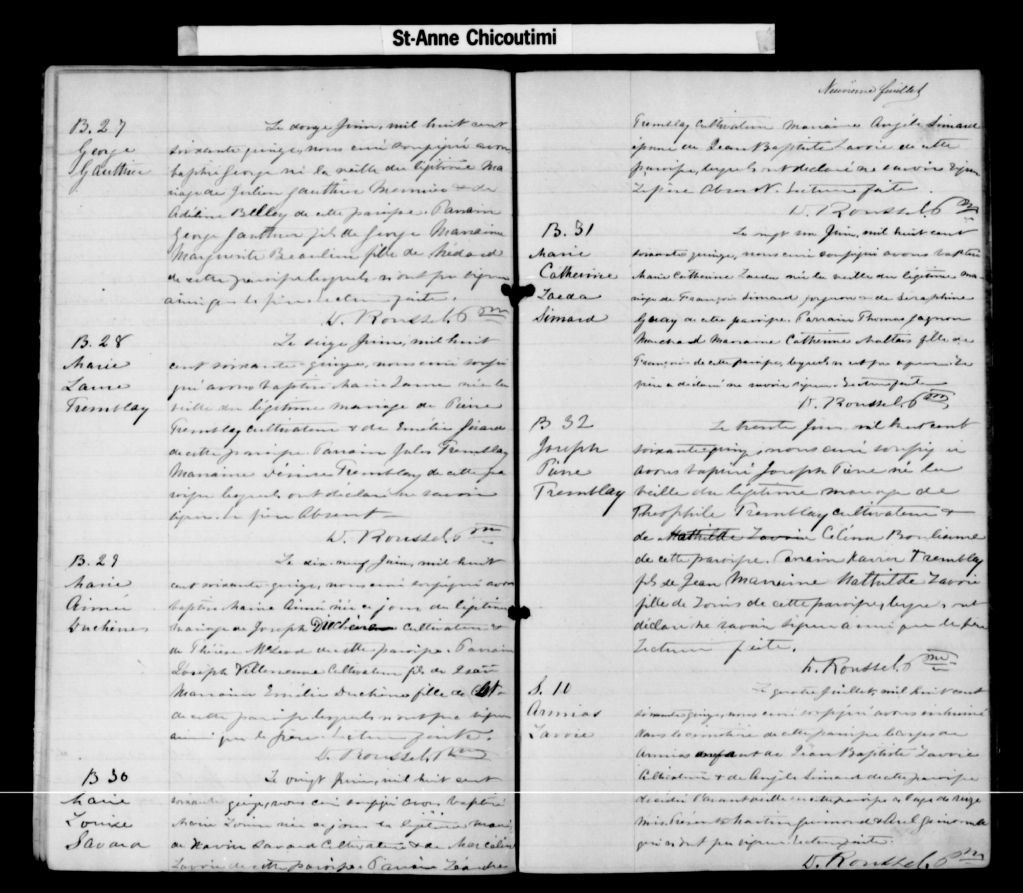 St-Anne Chicoutimi
B. 27
George
Gauthier
Le douze Juin, mil huit cent
soixante quinze, nous curé soussigné avons
baptisé George né la veille du légitime ma
riage de Julien Gauthier Menuisier & de
Adeline Belley de cette paroisse. Parrain
George Gauthier fils de George Marraine
Marguerite Beaulieu fille de Médard
de cette paroisse lesquels n'ont pu signer
ainsi que le père lecture faite.
D. Roussel, Ptre
B. 28
Marie
Laure
Tremblay
Le seize Juin, mil huit
cent soixante-quinze, nous curé soussi
gné avons baptisé Marie Laure née la
veille du légitime mariage de Pierre
Tremblay cultivateur & de Emélie Girard
de cette paroisse Parrain Jules Tremblay
Marraine Tremblay de cette pa
roisse lesquels ont déclaré ne savoir
signer. Le père Absent
D. Roussel, Ptre
B. 29
Marie
Aimée
Duchêne
Le dix-neuf Juin, mil huit
cent soixante-quinze, nous curé soussigné avons
baptisé Marie Aimée née ce jour du légitime
mariage de Joseph Duchêne cultivateur &
de Thérèse McLeod de cette paroisse. Parrain
Joseph Villeneuve Cultivateur fils de
Marraine Emélie Duchêne fille de
de cette paroisse lesquels n'ont pu signer
ainsi que le père lecture faite.
D. Roussel, Ptre
B 30
Marie
Louise
Savard
Le vingt Juin, mil huit cent
soixante quinze, nous curé soussigné avons baptisé
Marie Louise née ce jour du légitime mariage
de Xavier Savard Cultivateur & de
Lavoie de cette paroisse Parrain
Neuvième feuillet
Tremblay Cultivateur Marraine Angèle Simard
épouse de Jean Baptiste Lavoie de cette
paroisse, lesquels ont déclaré ne savoir signer
Le père Absent. Lecture faite.
D. Roussel, Ptre
B. 31
Marie
Catherine
Zaeda
Simard
Le vingt Juin, mil huit cent
soixante quinze, nous curé soussigné avons baptisé
Marie Catherine Zaeda née la veille du légitime ma
riage de François Simard & de Séraphine
Guay de cette paroisse. Parrain Thomas Gagnon
Marchand Marraine Catherine Maltais fille de
François de cette paroisse, lesquels Le
père a déclaré ne savoir signer. Lecture faite
D. Roussel, Ptre
B 32
Joseph
Pierre
Tremblay
Le trente Juin, mil huit cent
soixante quinze, nous curé soussigné
avons baptisé Joseph Pierre né la
veille du légitime mariage de
Théophile Tremblay cultivateur &
de Mathilde Lavoie Célina Boulianne
de cette paroisse. Parrain Xavier Tremblay
fils de Jean Marraine Mathilde Lavoie
fille de Louis de cette paroisse, lesquels ont
déclaré ne savoir signer ainsi que le père
Lecture faite.
D. Roussel, Ptre
S. 10
Lavoie
Le quatre Juillet, mil huit cent
soixante quinze, nous curé soussigné avons inhumé
dans le cimetière de cette paroisse le corps de
enfant de Jean Baptiste Lavoie
Cultivateur & de Angèle Simard de cette paroisse
décédé l'avant veille en cette paroisse à l'age de
mois Présents
qui n'ont pu signer lecture faite.
D. Roussel, Ptre